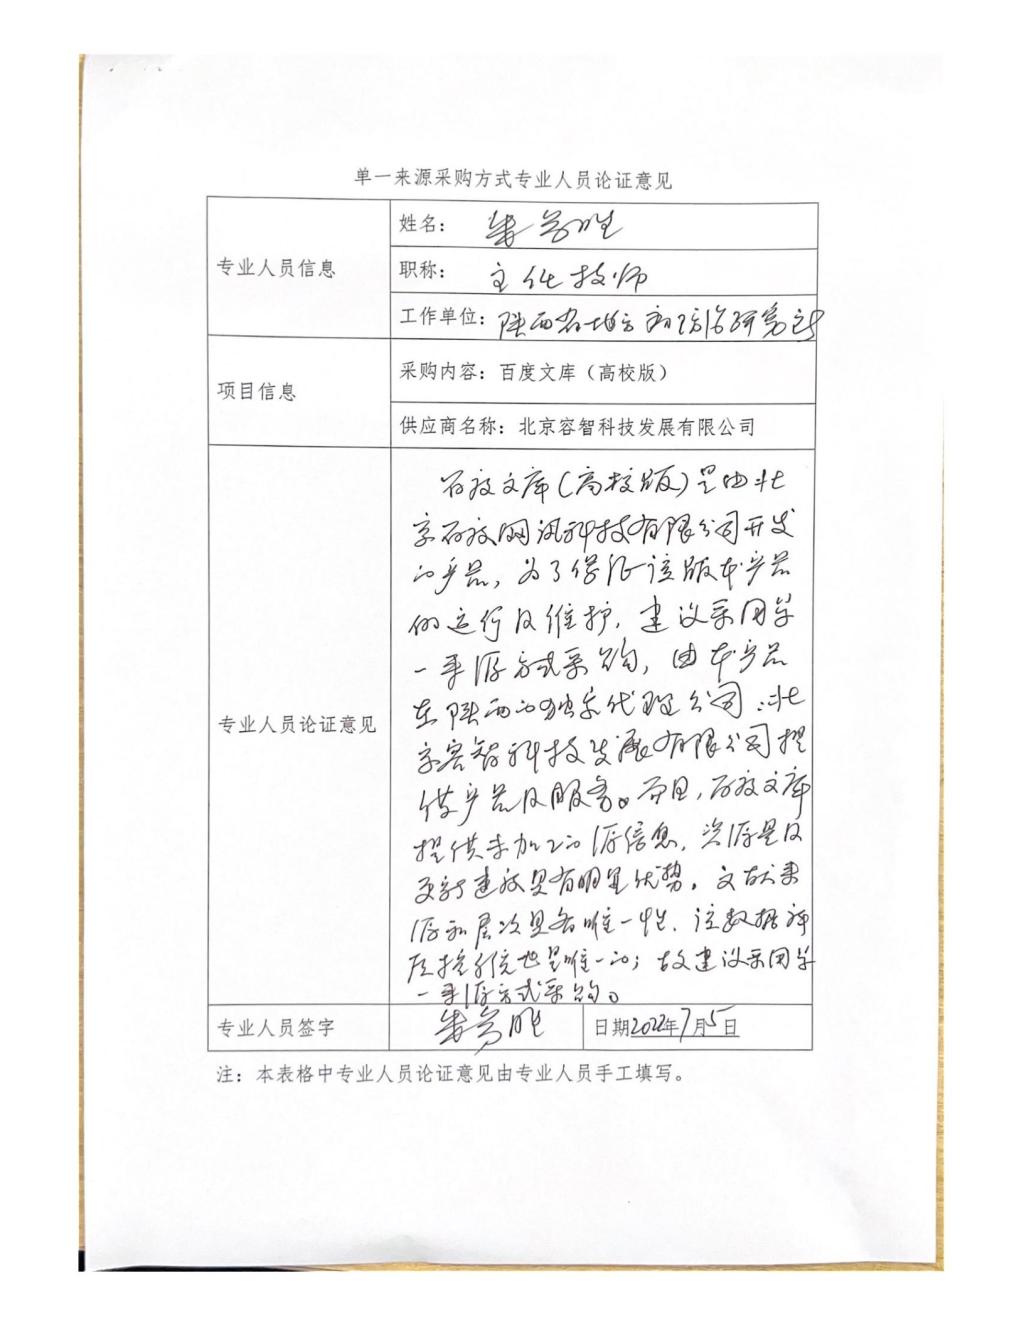 单一来源采购方式专业人员论证意见
专业人员信息
姓名：
职称： 主任技师
工作单位：陕西省地方病防治研究所
项目信息
采购内容：百度文库（高校版）
供应商名称：北京容智科技发展有限公司
专业人员论证意见
百度文库(高校版)是由北
京百度网讯科技有限公司开发
的产品，为了保证该版本产品
的运行及维护，建议采用单
一来源方式采购，由本产品
在陕西的独家代理公司：北
京容智科技发展有限公司提
供产品及服务。而且，百度文库
提供未加工的源信息，资源量及
更新速度具有明显优势。文献来
源和层次具有唯一性，该数据
检索系统也是唯一的；故建议采用单
一来源方式采购。
专业人员签字
日期2022年7月5日
注：本表格中专业人员论证意见由专业人员手工填写。